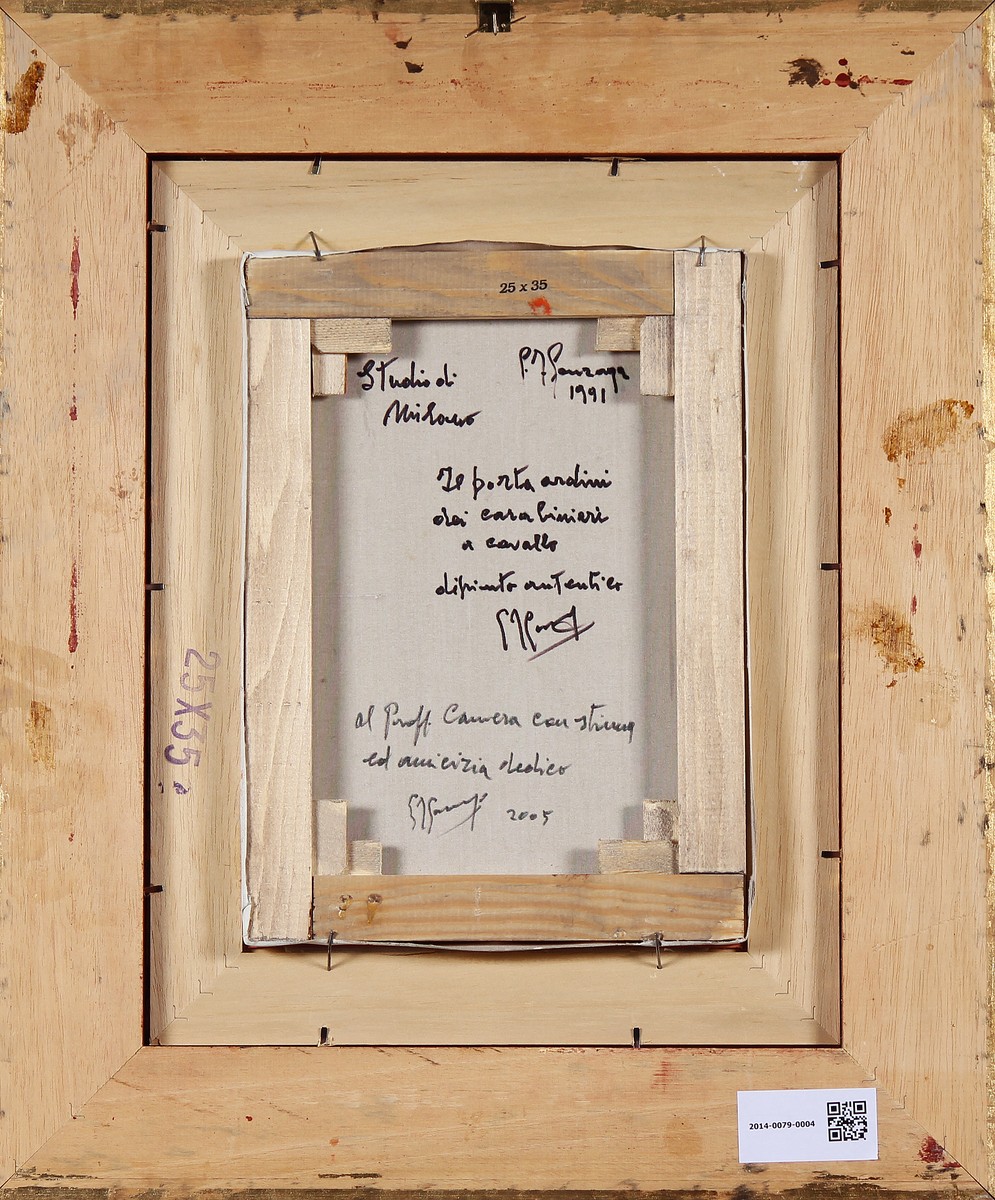 25 x 35
Studio di
Milano
P.F Gonzaga
1991
Il porta ordini
dei carabinieri
a cavallo
dipinto autentico
al Proff. Camera con stima
ed amicizia dedico
2005
25X35
2014-0079-0004